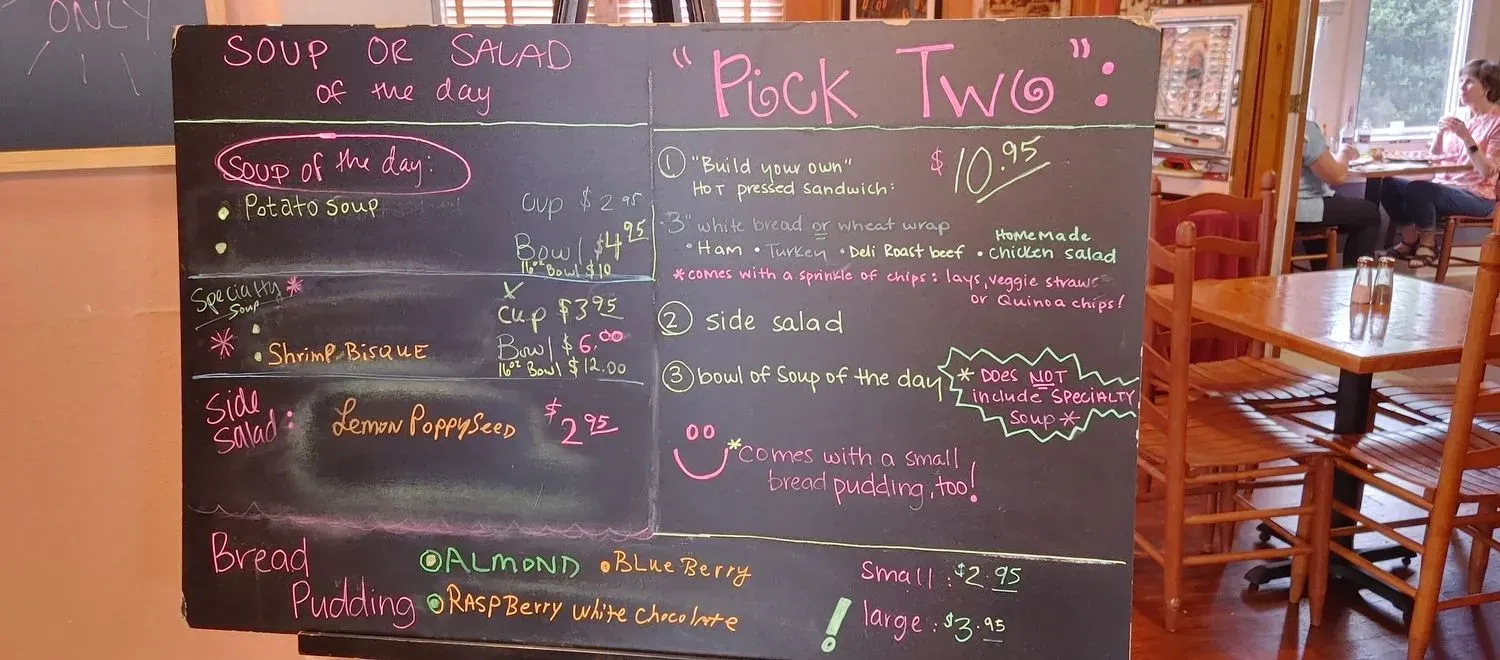 ONLY
SOUP OR SALAD
of the day
Soup of the day:
• Potato Soup
Cup $2.95
•
Bowl $4.95
16oz Bowl $10
Specialty *
Soup
Cup $3.95
* • Shrimp Bisque
Bowl $6.00
16oz Bowl $12.00
Side
Salad:
Lemon PoppySeed
$2.95
"Pick Two":
① "Build your own"
Hot pressed sandwich:
$10.95
white bread or wheat wrap
• Ham • Turkey • Deli Roast beef • Homemade
chicken salad
*comes with a sprinkle of chips: lays, veggie straws
or Quinoa chips!
② side salad
③ bowl of Soup of the day
* Does NOT
include SPECIALTY
Soup *
*Comes with a small
bread pudding, too!
Bread
Pudding
• ALMOND • BLueBerry
• RASPBerry White Chocolate
Small: $2.95
! large: $3.95